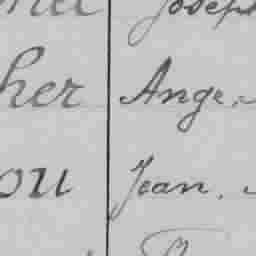 Joseph
her Ange,
ou Jean,